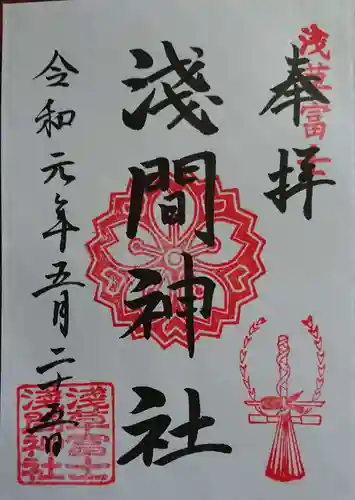 奉拝
浅草富士
淺間神社
令和元年五月二十五日
淺草富士
淺間神社